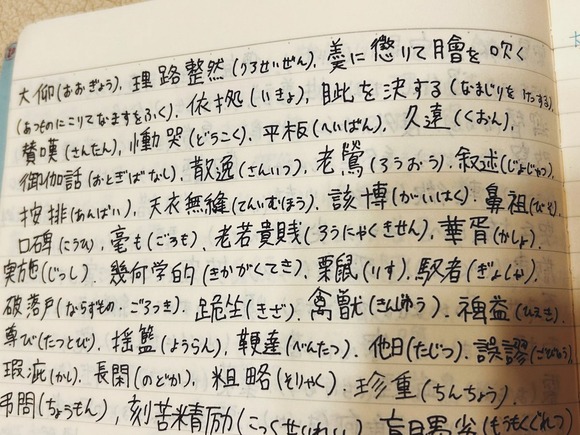 大仰(おおぎょう)、理路整然(りろせいぜん)、羹に懲りて膾を吹く
(あつものにこりてなますをふく)、依拠(いきょ)、眦を決する(なまじりをけっする)、
賛嘆(さんたん)、慟哭(どうこく)、平板(へいばん)、久遠(くおん)、
御伽話(おとぎばなし)、散逸(さんいつ)、老鶯(ろうおう)、叙述(じょじゅつ)、
按排(あんばい)、天衣無縫(てんいむほう)、該博(がいはく)、鼻祖(びそ)
口碑(こうひ)、毫も(ごうも)、老若貴賎(ろうにゃくきせん)、華胥(かしょ)、
実施(じっし)、幾何学的(きかがくてき)、栗鼠(りす)、馭者(ぎょしゃ)、
破落戸(ならずもの・ごろつき)、跪坐(きざ)、禽獣(きんじゅう)、裨益(ひえき)、
尊び(たっとび)、揺籃(ようらん)、鞭撻(べんたつ)、他日(たじつ)、誤謬(ごびゅう)
瑕疵(かし)、長閑(のどか)、粗略(そりゃく)、珍重(ちんちょう)、
弔問(ちょうもん)、刻苦精励(こっくせいれい)、盲目愚劣(もうもくぐれつ)